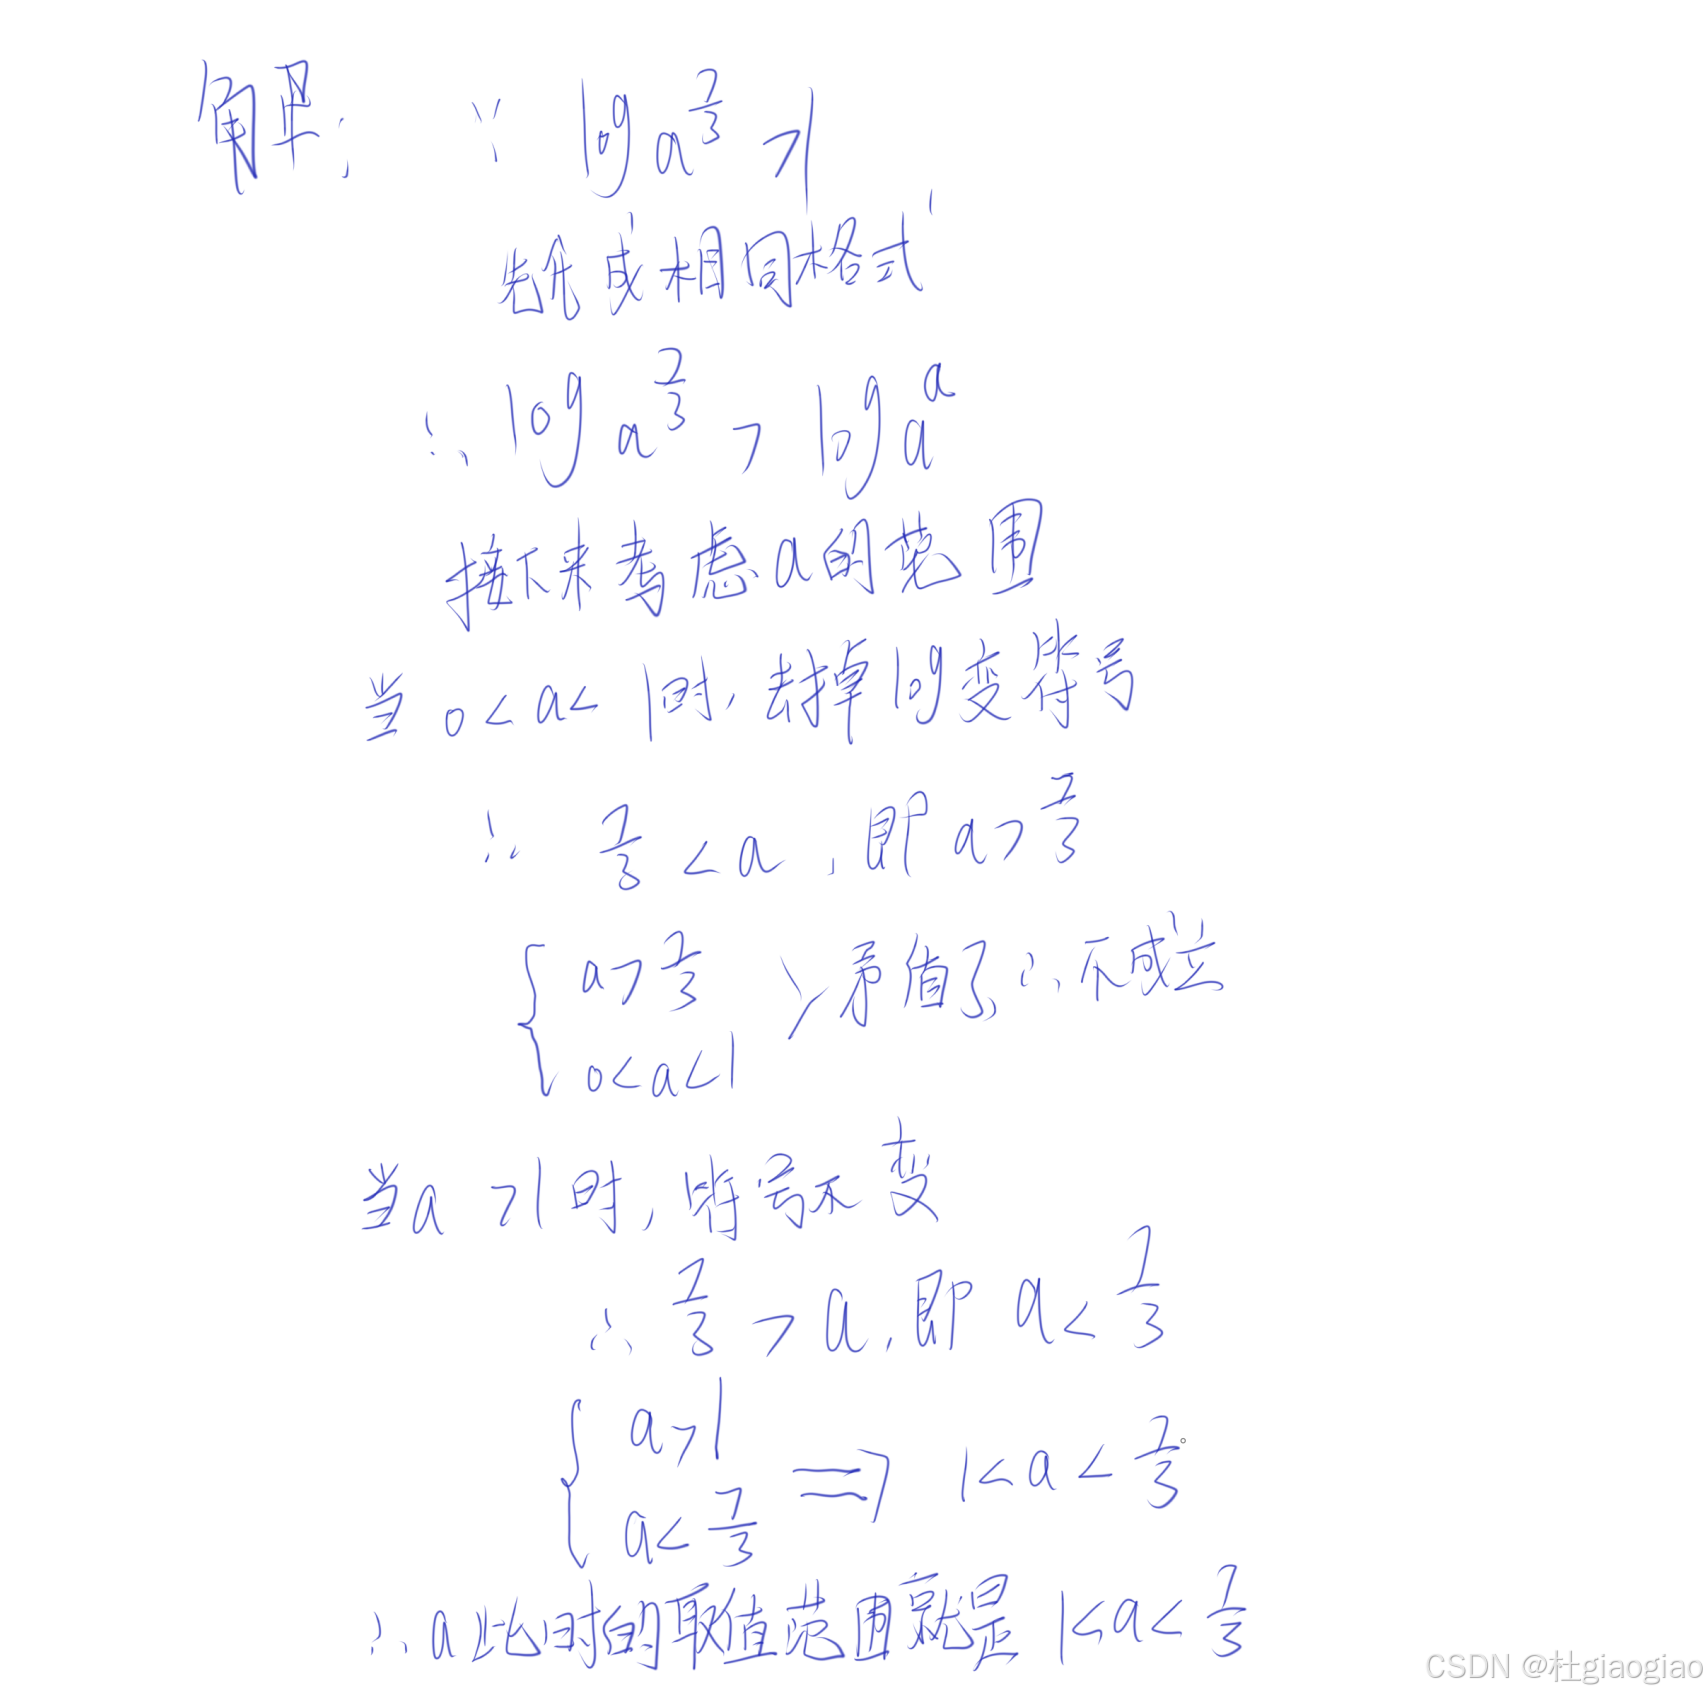 解: ∵ log a^{7/3} >1
先化成相同格式
∴ log a^{7/3} > log a^a
接下来考虑a的范围
当 0<a<1时, 去掉log变符号
∴ 7/3 <a, 即 a>7/3
{ a>7/3
0<a<1 } 矛盾了, ∴ 不成立
当a >1时, 符号不变
∴ 7/3 >a, 即 a<7/3
{ a>1
a<7/3 ⇒ 1<a<7/3
∴ a此时的取值范围就是 1<a<7/3
CSDN @杜giaogiao